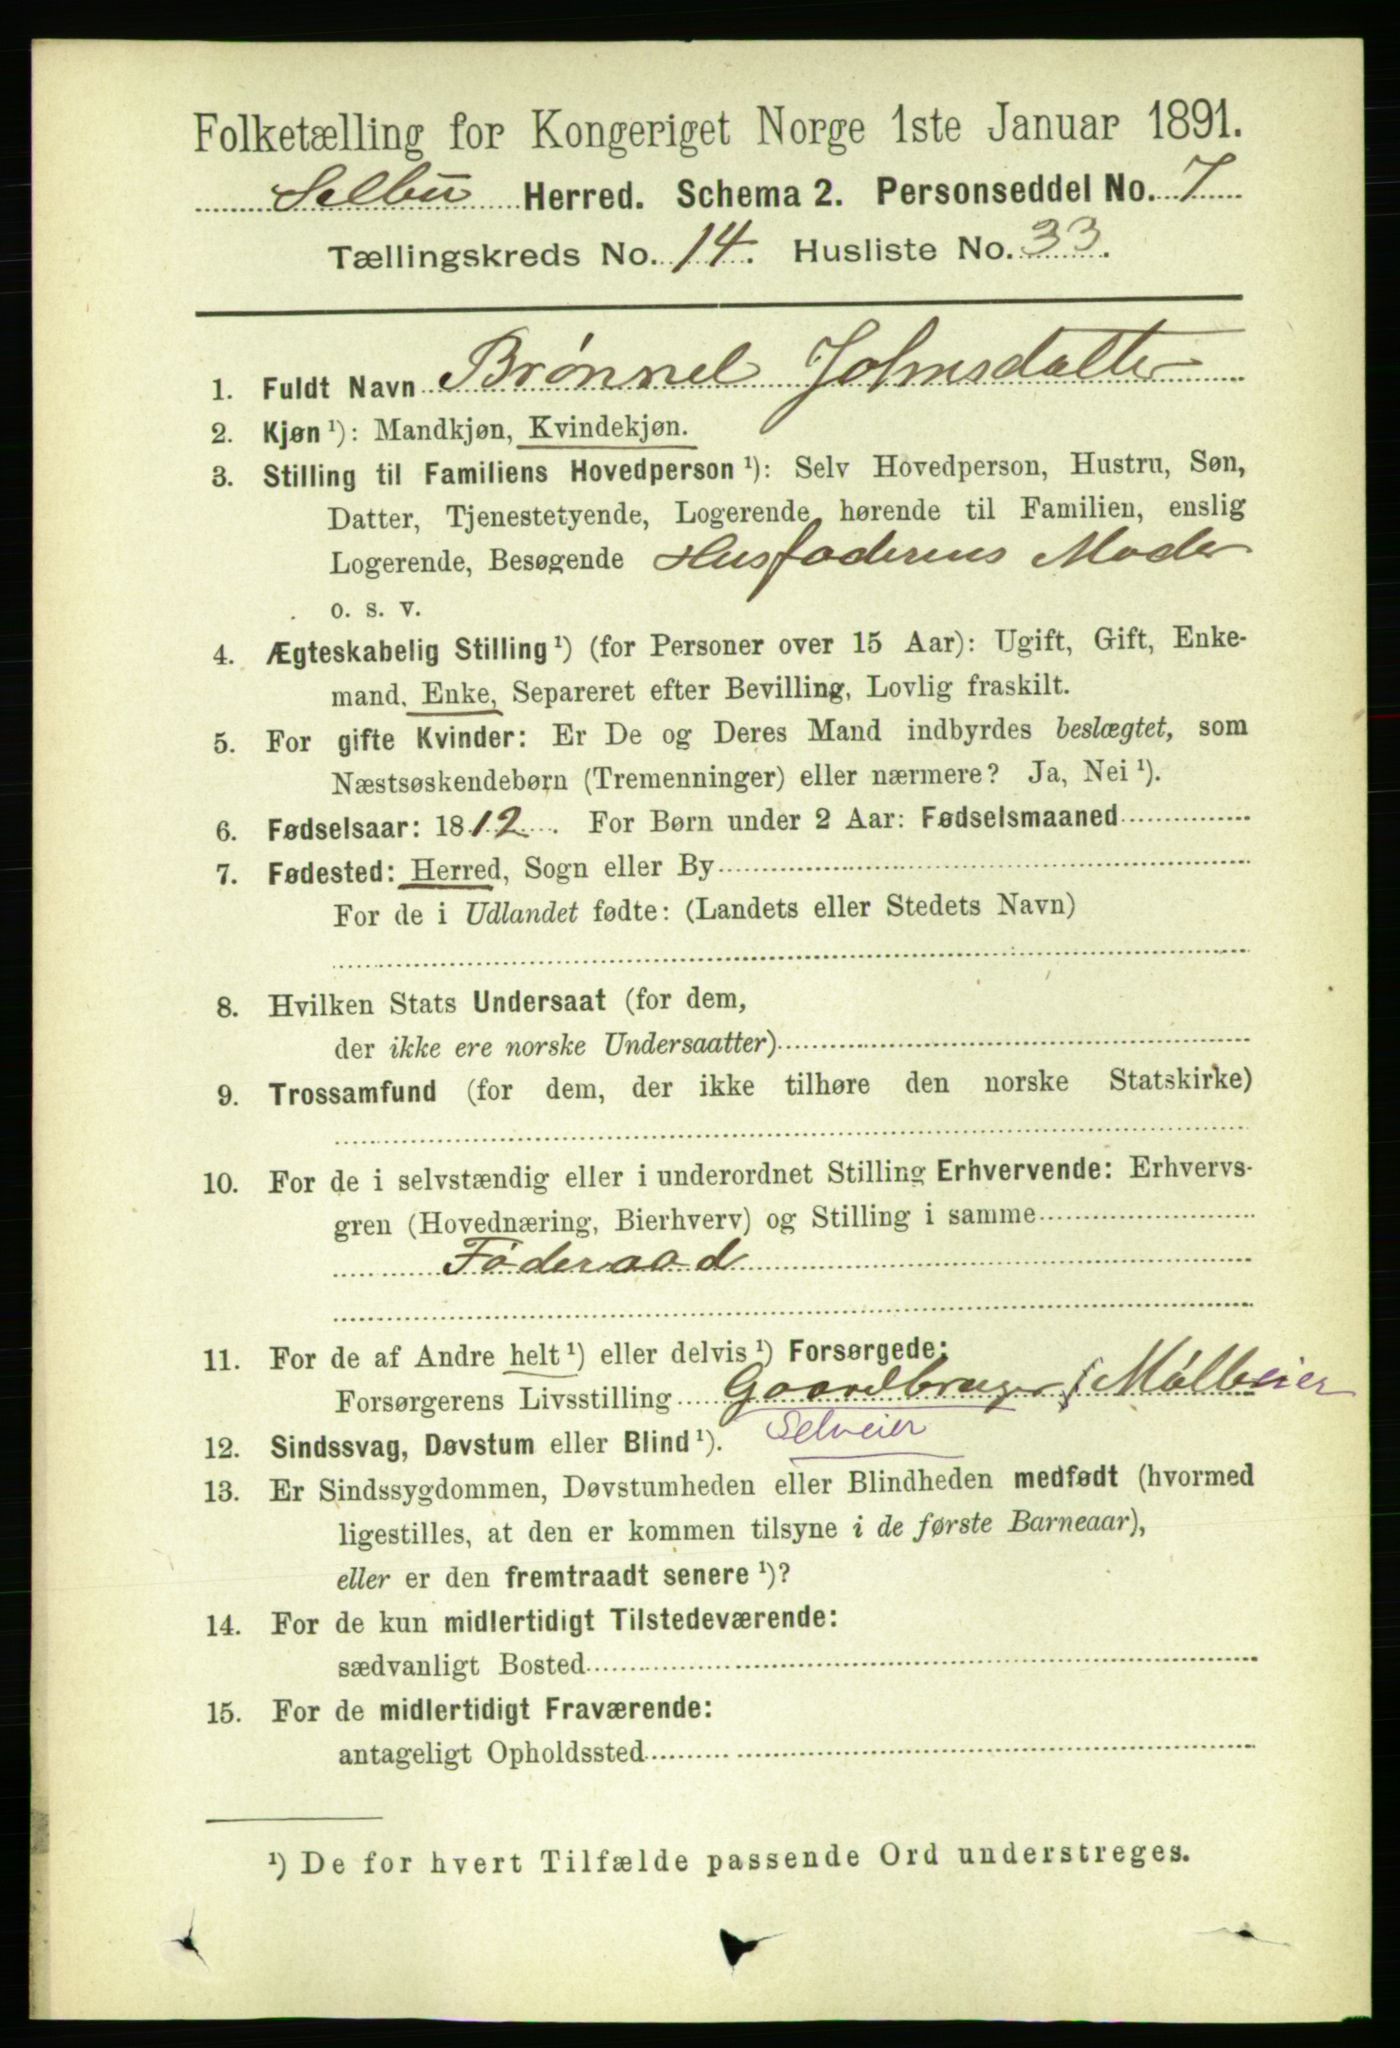 Folketælling for Kongeriget Norge 1ste Januar 1891.
Selbu Herred. Schema 2. Personseddel No. 7
Tællingskreds No. 14. Husliste No. 33.
1. Fuldt Navn Brønnel Johnsdatter
2. Kjøn¹): Mandkjøn, Kvindekjøn.
3. Stilling til Familiens Hovedperson¹): Selv Hovedperson, Hustru, Søn,
Datter, Tjenestetyende, Logerende hørende til Familien, enslig
Logerende, Besøgende Husfaderens Moder
o. s. v.
4. Ægteskabelig Stilling¹) (for Personer over 15 Aar): Ugift, Gift, Enke-
mand, Enke, Separeret efter Bevilling, Lovlig fraskilt.
5. For gifte Kvinder: Er De og Deres Mand indbyrdes beslægtet, som
Næstsøskendebørn (Tremenninger) eller nærmere? Ja, Nei¹).
6. Fødselsaar: 1812. For Børn under 2 Aar: Fødselsmaaned
7. Fødested: Herred, Sogn eller By
For de i Udlandet fødte: (Landets eller Stedets Navn)
8. Hvilken Stats Undersaat (for dem,
der ikke ere norske Undersaatter)
9. Trossamfund (for dem, der ikke tilhøre den norske Statskirke)
10. For de i selvstændig eller i underordnet Stilling Erhvervende: Erhvervs-
gren (Hovednæring, Bierhverv) og Stilling i samme
Føderaad
11. For de af Andre helt¹) eller delvis¹) Forsørgede:
Forsørgerens Livsstilling Gaardbruger
Selveier
12. Sindssvag, Døvstum eller Blind¹).
13. Er Sindssygdommen, Døvstumheden eller Blindheden medfødt (hvormed
ligestilles, at den er kommen tilsyne i de første Barneaar),
eller er den fremtraadt senere¹)?
14. For de kun midlertidigt Tilstedeværende:
sædvanligt Bosted
15. For de midlertidigt Fraværende:
antageligt Opholdssted
¹) De for hvert Tilfælde passende Ord understreges.